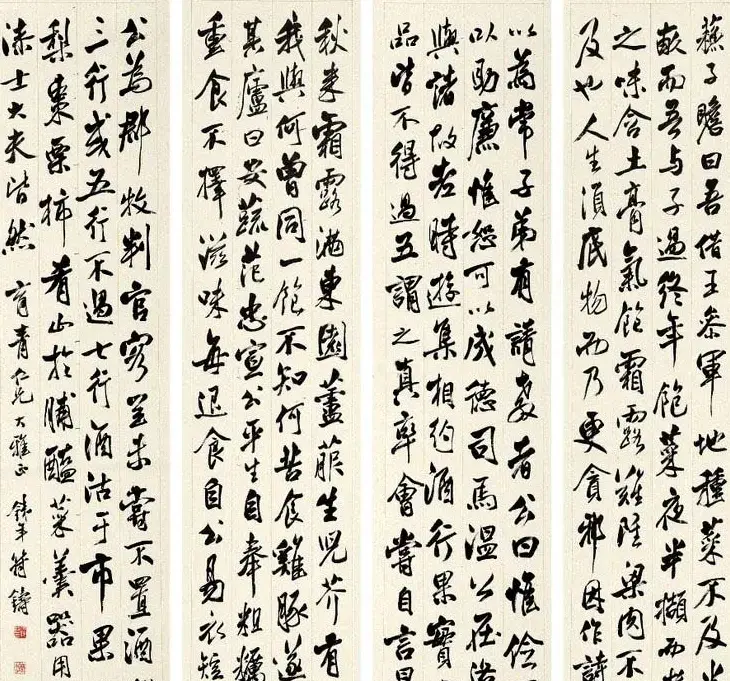 蘇子瞻曰吾借王參軍地種菜不及半
畝而吾与子過終年飽菜夜半擷而
之味含土膏氣飽霜露雖陸梁肉不
及也人生須底物而乃更貪邪因作詩
以為常子弟有請教者公曰惟儉
以助廉惟恕可以成德司馬溫公在洛
與諸故老時遊集相約酒行果實
品皆不得過五謂之真率會嘗自言
秋來霜露滿東園蘆菔生兒芥有
我與何曾同一飽不知何苦食雞豚遂
其廬曰安蔬范忠宣公平生自奉粗糲
重食不擇滋味每退食自公易衣短
公為郡牧判官客至未嘗不置酒
三行或五行不過七行酒沽于市果
梨棗栗柿肴止於脯醢菜羹器用
漆士大夫皆然 育青仁兄大雅正 鐵年符鑄